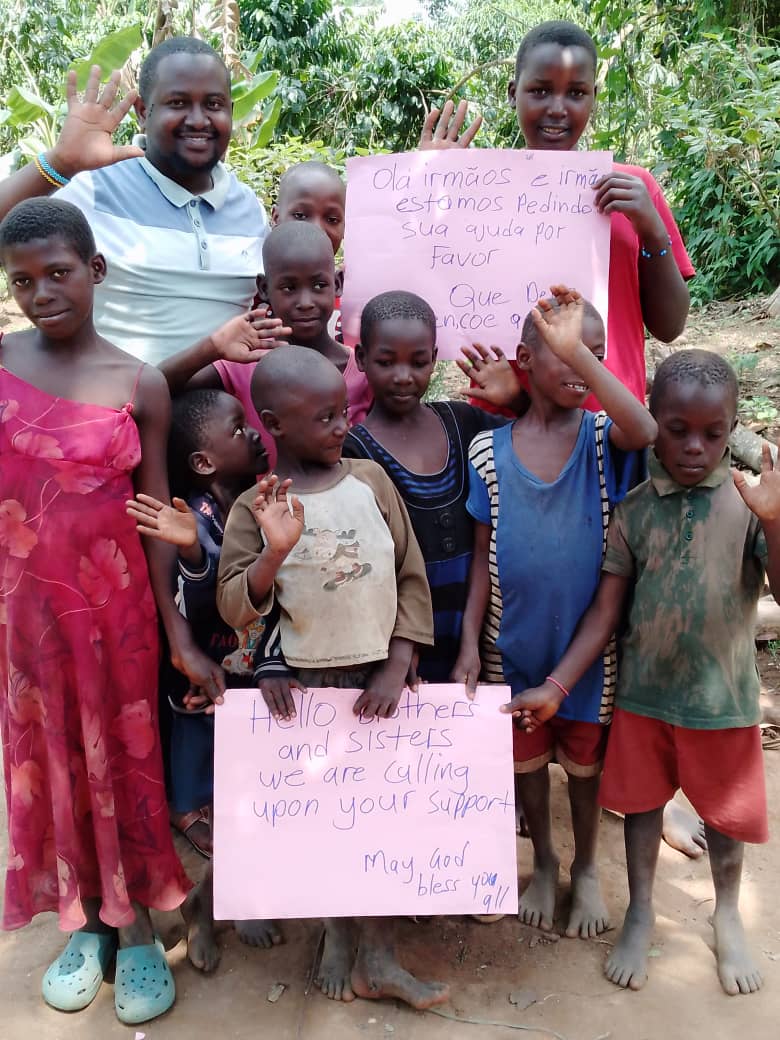 Olá irmãos e irmã
estamos Pedindo
sua ajuda por
Favor
Que De
Hello Brothers
and sisters
we are calling
upon your support
May God
bless you
all